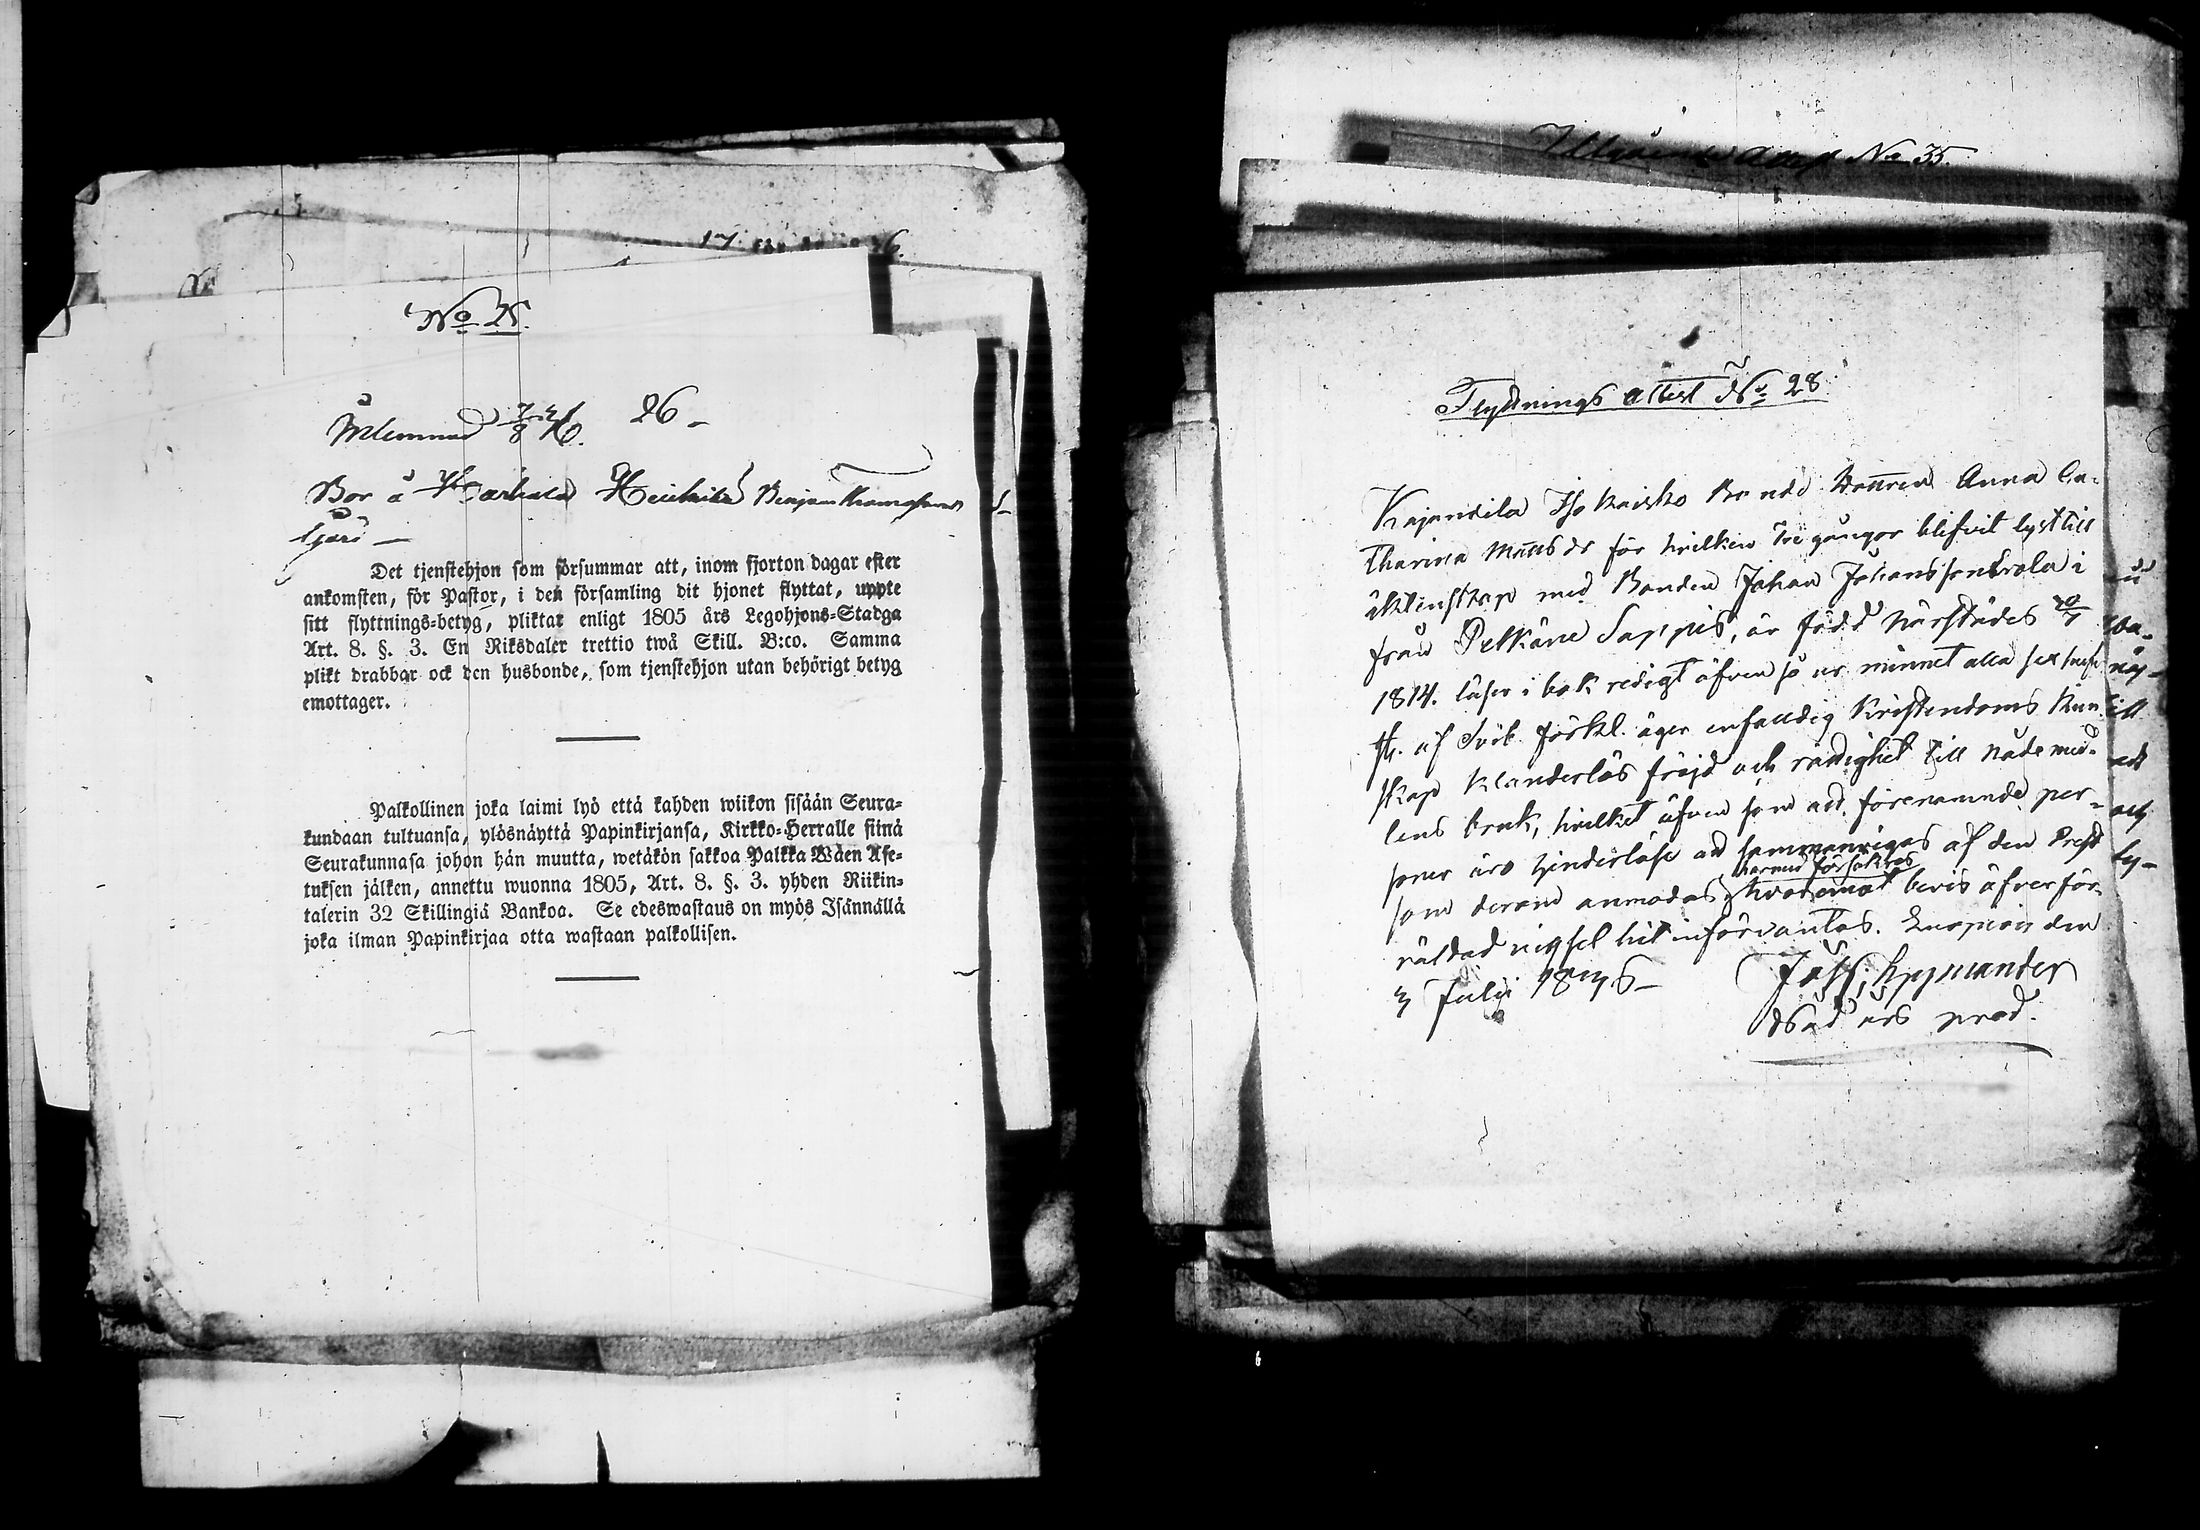 No 25.
26 –
Bor å Heickilä Benjam Thomasson
Det tjenstehjon som försummar att, inom fjorton dagar efter
ankomsten, för Pastor, i den församling dit hjonet flyttat, uppte
sitt flyttnings-betyg, pliktar enligt 1805 års Legohjons-Stadga
Art. 8. §. 3. En Riksdaler trettio twå Skill. B:co. Samma
plikt drabbar ock den husbonde, som tjenstehjon utan behörigt betyg
emottager.
Palkollinen joka laimi lyö että kahden wiikon sisään Seura-
kundaan tultuansa, ylösnäyttä Papinkirjansa, Kirkko-Herralle siinä
Seurakunnasa johon hän muutta, wetäkön sakkoa Palkka Wäen Ase-
tuksen jälken, annettu wuonna 1805, Art. 8. §. 3. yhden Riikin-
talerin 32 Skillingiä Bankoa. Se edeswastaus on myös Isännällä
joka ilman Papinkirjaa otta wastaan palkollisen.
Attest No 35.
Flyttnings Attest No 28
Kajandila Iso Kaisko Bonde Dottren Anna Ca-
tharina Mattsdr för hvilken Tre gångor blifvit lyst till
äktenskap med Bonden Johan Johansson Erola i
från Pelkäne Sappis, är född härstädes 20/7
1814. läser i bok redigt äfven så ur minnet alla
st. af Sveb. förkl. äger enfaldig Kristendoms Kun
skap klanderlös fräjd och rättighet till Nådemed-
lens bruk, hvilket äfven som att förenämnde per-
soner äro hinderlöse att sammanvigas af den Prest
härmed försäkras
som derom anmodas, hvaremot bevis öfver för-
rättad vigsel hit införväntas. Kuopion den
3 Julii 1846 –